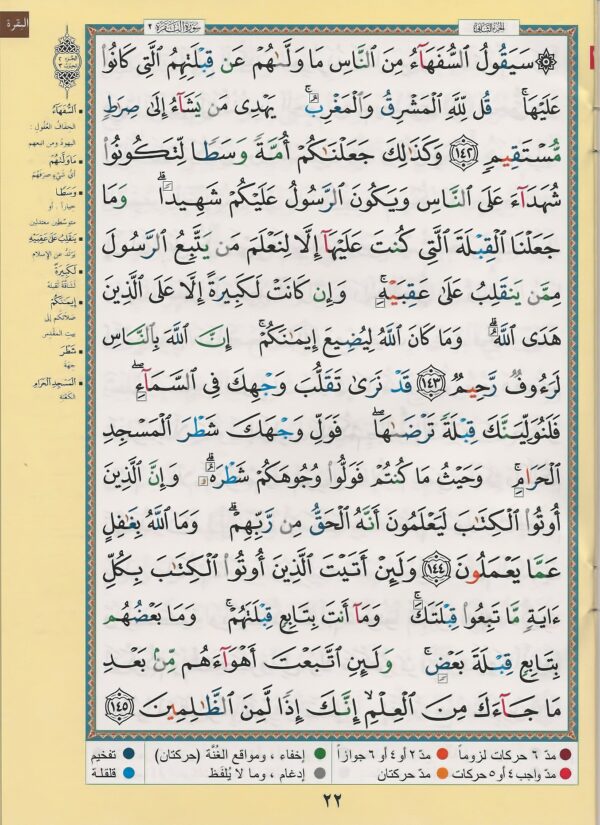 البقرة
سورة البقرة ٢
الجزء الثاني
سَيَقُولُ السُّفَهَآءُ مِنَ النَّاسِ مَا وَلَّىٰهُمْ عَن قِبْلَتِهِمُ الَّتِى كَانُوا۟
عَلَيْهَا ۚ قُل لِّلَّهِ الْمَشْرِقُ وَالْمَغْرِبُ ۚ يَهْدِى مَن يَشَآءُ إِلَىٰ صِرَٰطٍ
مُّسْتَقِيمٍ ١٤٢ وَكَذَٰلِكَ جَعَلْنَٰكُمْ أُمَّةً وَسَطًا لِّتَكُونُوا۟
شُهَدَآءَ عَلَى النَّاسِ وَيَكُونَ الرَّسُولُ عَلَيْكُمْ شَهِيدًا ۗ وَمَا
جَعَلْنَا الْقِبْلَةَ الَّتِى كُنتَ عَلَيْهَآ إِلَّا لِنَعْلَمَ مَن يَتَّبِعُ الرَّسُولَ
مِمَّن يَنقَلِبُ عَلَىٰ عَقِبَيْهِ ۚ وَإِن كَانَتْ لَكَبِيرَةً إِلَّا عَلَى الَّذِينَ
هَدَى اللَّهُ ۗ وَمَا كَانَ اللَّهُ لِيُضِيعَ إِيمَٰنَكُمْ ۚ إِنَّ اللَّهَ بِالنَّاسِ
لَرَءُوفٌ رَّحِيمٌ ١٤٣ قَدْ نَرَىٰ تَقَلُّبَ وَجْهِكَ فِى السَّمَآءِ ۖ
فَلَنُوَلِّيَنَّكَ قِبْلَةً تَرْضَىٰهَا ۚ فَوَلِّ وَجْهَكَ شَطْرَ الْمَسْجِدِ
الْحَرَامِ ۚ وَحَيْثُ مَا كُنتُمْ فَوَلُّوا۟ وُجُوهَكُمْ شَطْرَهُۥ ۗ وَإِنَّ الَّذِينَ
أُوتُوا۟ الْكِتَٰبَ لَيَعْلَمُونَ أَنَّهُ الْحَقُّ مِن رَّبِّهِمْ ۗ وَمَا اللَّهُ بِغَٰفِلٍ
عَمَّا يَعْمَلُونَ ١٤٤ وَلَئِنْ أَتَيْتَ الَّذِينَ أُوتُوا۟ الْكِتَٰبَ بِكُلِّ
ءَايَةٍ مَّا تَبِعُوا۟ قِبْلَتَكَ ۚ وَمَآ أَنتَ بِتَابِعٍ قِبْلَتَهُمْ ۚ وَمَا بَعْضُهُم
بِتَابِعٍ قِبْلَةَ بَعْضٍ ۚ وَلَئِنِ اتَّبَعْتَ أَهْوَآءَهُم مِّنۢ بَعْدِ
مَا جَآءَكَ مِنَ الْعِلْمِ ۙ إِنَّكَ إِذًا لَّمِنَ الظَّٰلِمِينَ ١٤٥
السُّفَهَآءُ
الخفاف العقول:
اليهود ومن اتبعهم
مَا وَلَّىٰهُمْ
أيّ شيءٍ صرفهم
وَسَطًا
خياراً. أو
متوسّطين معتدلين
يَنقَلِبُ عَلَىٰ عَقِبَيْهِ
يرتدّ عن الإسلام
لَكَبِيرَةً
لشاقّة ثقيلة
إِيمَٰنَكُمْ
صلاتكم إلى
بيت المقدس
شَطْرَ
جهة
الْمَسْجِدِ الْحَرَامِ
الكعبة
مدّ ٦ حركات لزوماً مدّ ٢ أو ٤ أو ٦ جوازاً إخفاء، ومواقع الغُنَّة (حركتان) تفخيم
مدّ واجب ٤ أو ٥ حركات مدّ حركتان إدغام، وما لا يُلفَظ قلقلة
٢٢